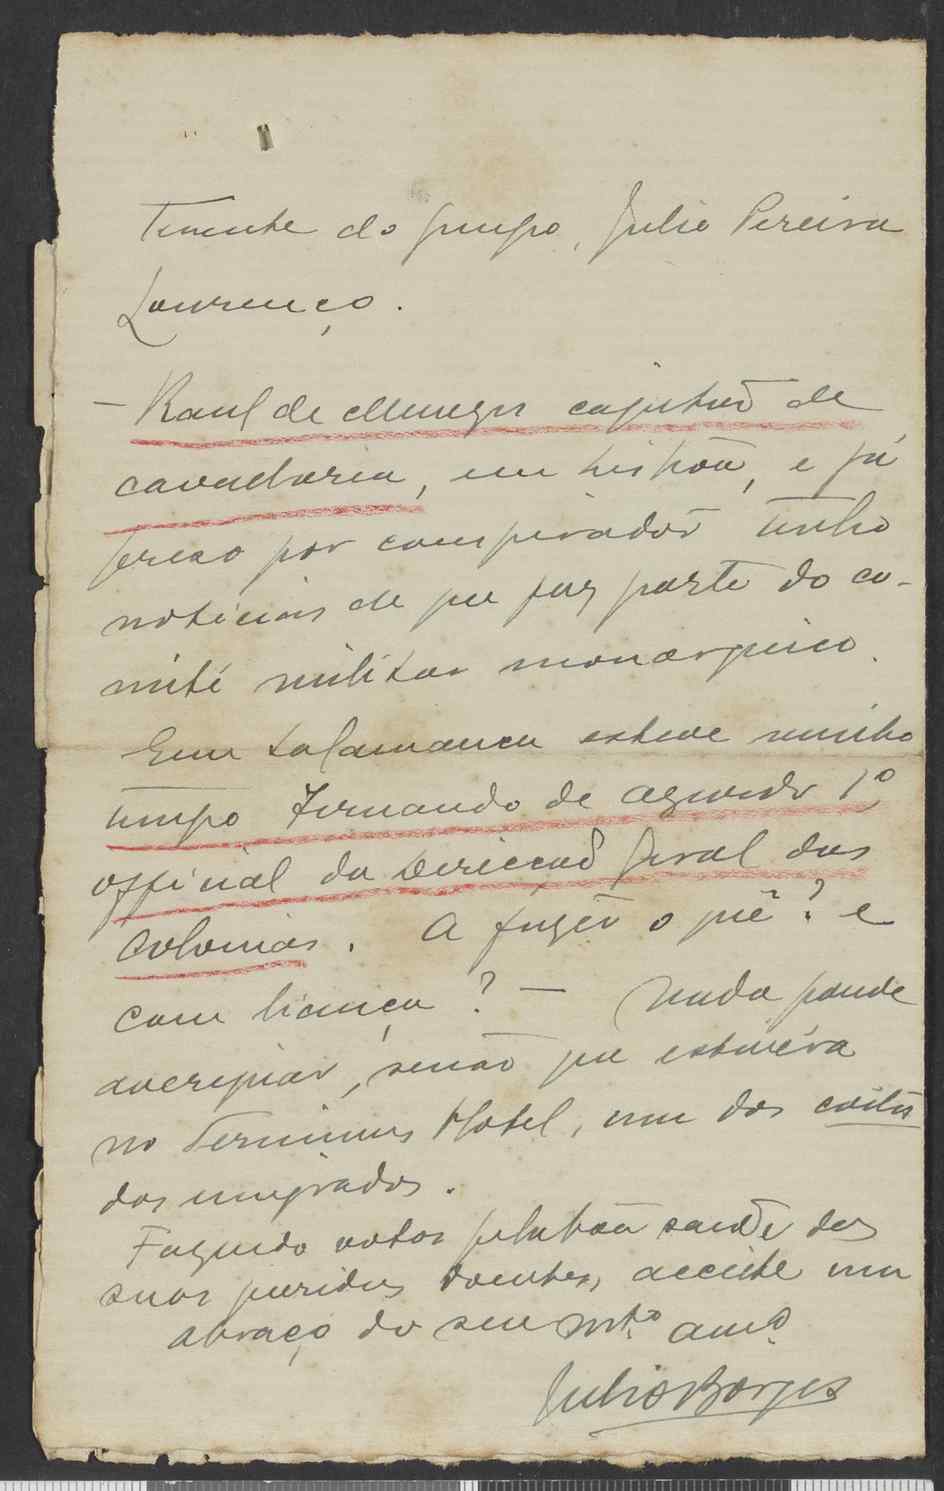 Tenente do grupo, Julio Pereira
Lourenço.
— Raul de Menezes capitão de
cavallaria, em Lisboa, e já
preso por conspirador tenho
noticias de que faz parte do co-
mité militar monarquico.
Em Salamanca esteve muito
tempo Fernando de Azevedo 1º
official da Direcção Geral das
Colonias. A fazer o quê? e
com licença? — Nada poude
averiguar, senão que estivéra
no Terminus Hotel, um dos coitos
dos emigrados.
Fazendo votos pela bôa saude dos
suas queridas doentes, acceite um
abraço do seu mtº amº
Julio Borges